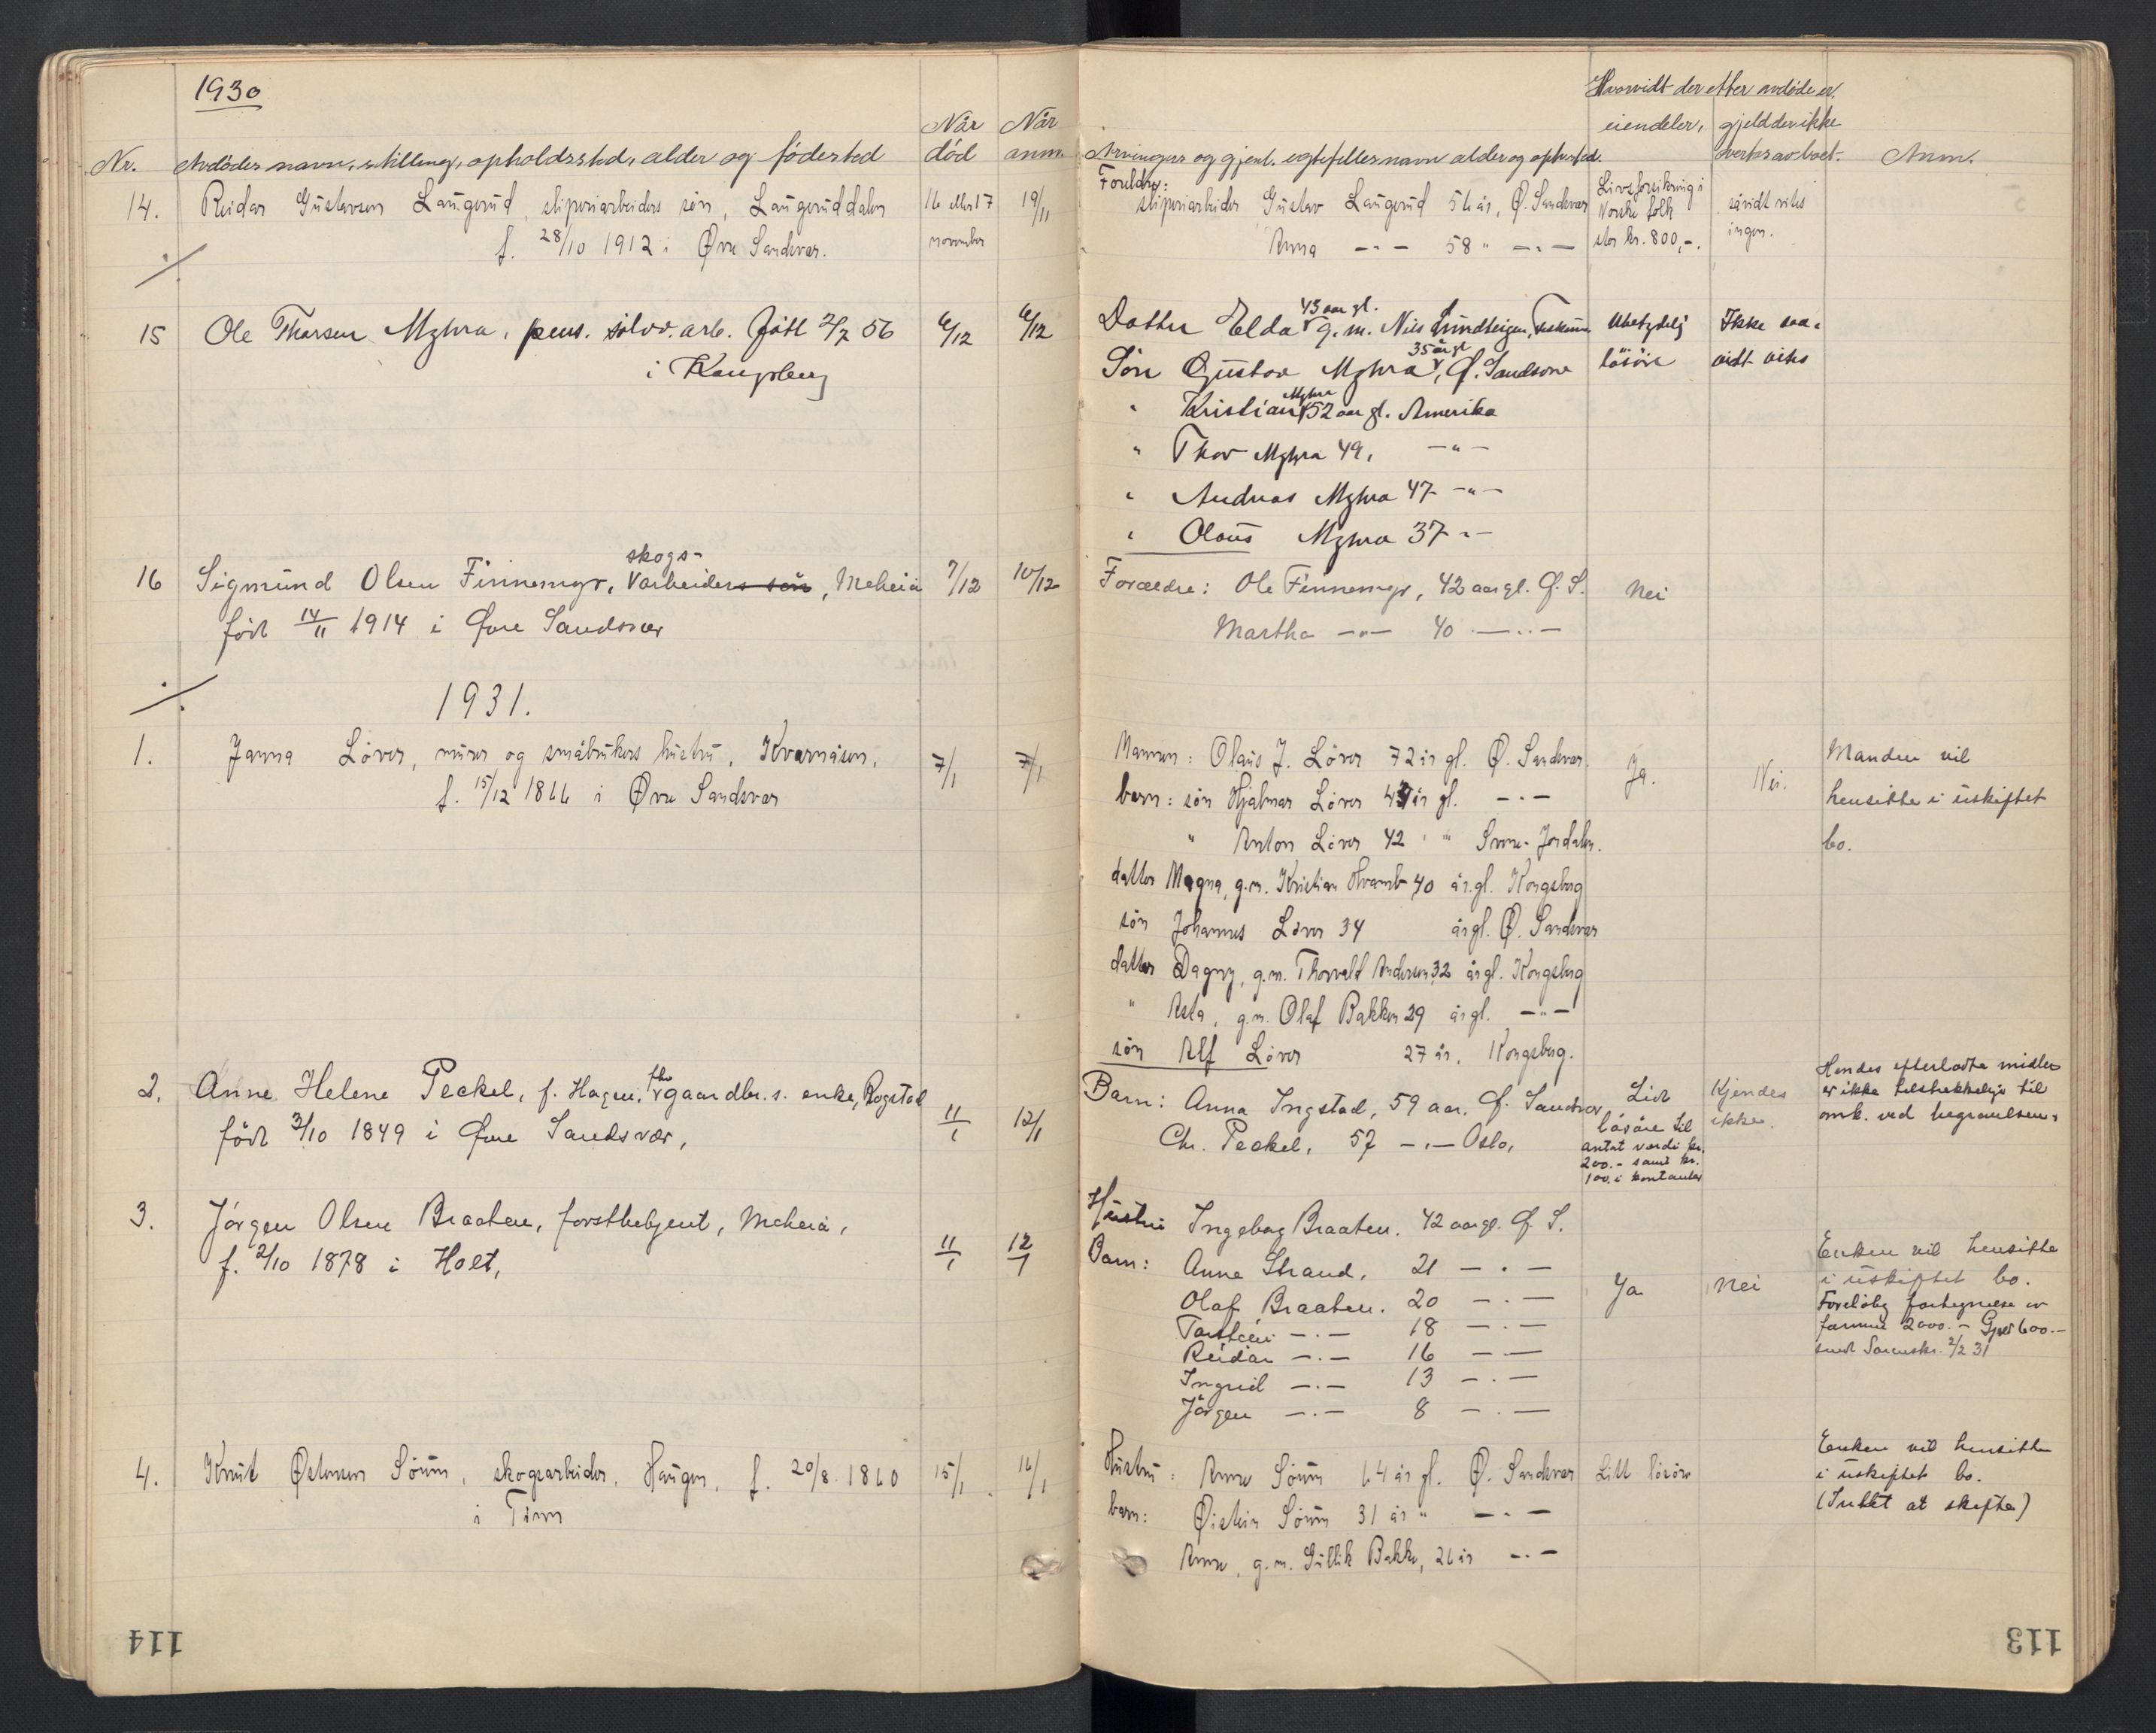 1930
Nr. Avdødes navn, stilling, opholdssted, alder og fødested
Når død
Når anm.
14. Reidar Gustavsen Laugerud, sliperiarbeiders søn, Laugeruddalen
f. 28/10 1912 i Øvre Sandsvær.
16 eller 17 november
19/11
15 Ole Thorsen Myhra, pens. sølvv. arb. født 2/7 56
i Kongsberg
6/12
6/12
16 Sigmund Olsen Finnemyr, skogs-arbeiders søn, Meheia
født 14/11 1914 i Øvre Sandsvær
7/12
10/12
1931.
1. Janna Løver, murer og småbrukers hustru, Kvarnåsen,
f. 15/12 1866 i Øvre Sandsvær
7/1
7/1
2. Anne Helene Peckel, f. Hagen, fhv gaardbr.s. enke, Rogstad
født 3/10 1849 i Øvre Sandsvær,
11/1
12/1
3. Jørgen Olsen Braaten, forstbetjent, Meheia,
f. 2/10 1878 i Holt,
11/1
12/1
4. Knut Østensen Søum, skogsarbeider, Haugen, f. 20/8 1860
i Tinn
15/1
16/1
114
Hvorvidt der efter avdøde er.
eiendeler,
gjeld der ikke
dekkes av boet.
Arvinger og gjenl. egtefelles navn alder og opholdssted.
Anm.
Foreldre:
sliperiarbeider Gustav Laugerud 56 år, Ø. Sandsvær
Anna -"- 58 " -"-
Livsforsikring i
Norske folk
stor kr. 800,-.
såvidt vites
ingen.
Datter Elda 43 aar gl. g.m. Nils Lundteigen,
Søn Gustav Myhra 35 år gl, Ø. Sandsvær
" Kristian Myhra 52 aar gl. Amerika
" Thor Myhra 49, -"-
" Andreas Myhra 47 -"-
" Olaus Myhra 37 -"-
Ubetydelig
løsøre
Ikke saa-
vidt vites
Forældre: Ole Finnemyr, 42 aar gl. Ø. S.
Martha -"- 40 -"-
Nei
Mannen: Olaus J. Løver 72 år gl. Ø. Sandsvær.
barn: søn Hjalmar Løver 47 år gl. -"-
" Anton Løver 42 " " Jondalen.
datter Magna, g.m. Kristian Hvamb 40 år gl. Kongsberg
søn Johannes Løver 34 år gl. Ø. Sandsvær
datter Dagny, g.m. Thorvald Andersen 32 år gl. Kongsberg
" Asta, g.m. Olaf Bakken 29 år gl. -"-
søn Alf Løver 27 år. Kongsberg.
Ja.
Nei.
Manden vil
hensitte i uskiftet
bo.
Barn: Anna Ingstad, 59 aar. Ø. Sandsvær
Chr. Peckel, 57 -"- Oslo,
Lidt
løsøre til
antat verdi kr.
200.- samt kr.
100. i kontanter
Kjendes
ikke.
Hendes efterladte midler
er ikke tilstrekkelige til
omk. ved begravelsen.
Hustru Ingeborg Braaten. 42 aar gl. Ø. S.
Barn: Anne Strand, 21 -"-
Olaf Braaten. 20 -"-
Torstein -"- 18 -"-
Reidar -"- 16 -"-
Ingrid -"- 13 -"-
Jørgen -"- 8 -"-
Ja
Nei
Enken vil hensitte
i uskiftet bo.
Foreløbig fortegnelse ov
formue 2000.- Gjeld 600.-
sendt Sorenskr. 2/2 31
Hustru: Anne Søum 64 år gl. Ø. Sandsvær
barn: Øistein Søum 31 år " -"-
Anne, g.m. Gullik Bakke, 26 år -"-
Litt løsøre
Enken vil hensitte
i uskiftet bo.
(Intet at skifte)
113